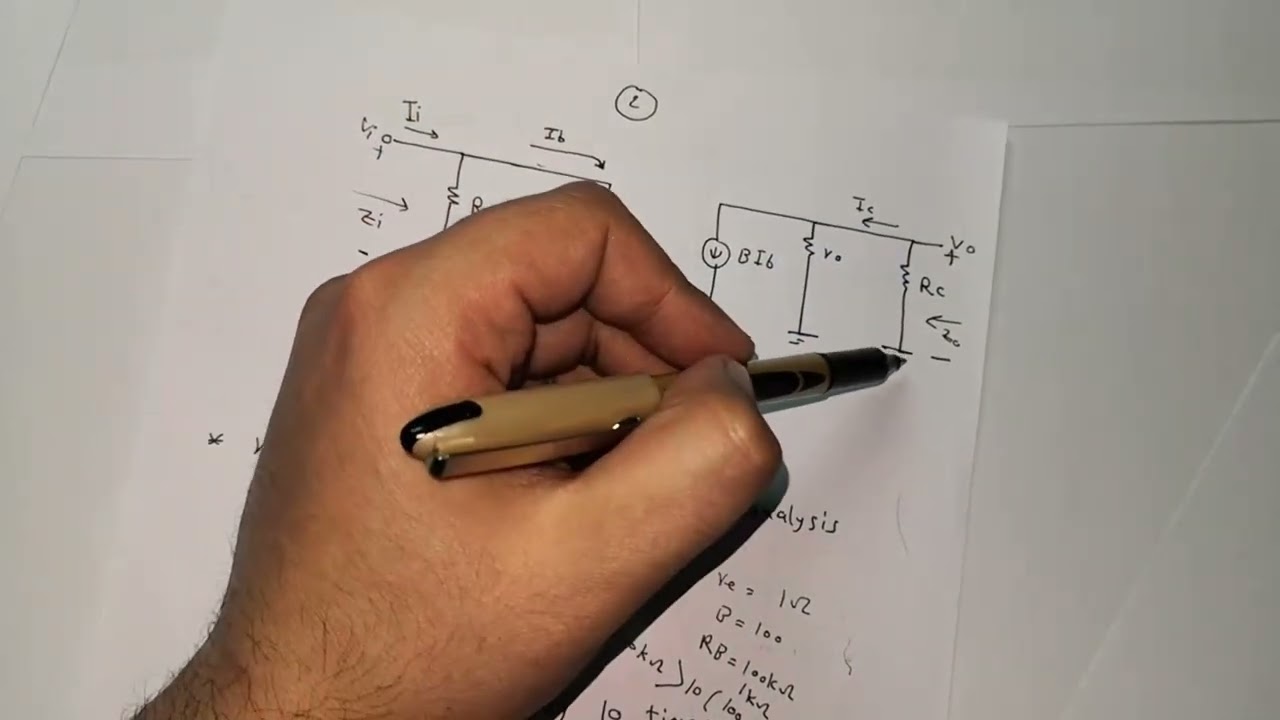 2
Ii
Vi
+
Ib
Zi
R
-
Ic
Vo
+
BIb
ro
Rc
Zo
-
*
alysis
re = 1Ω
B = 100
RB = 100kΩ
1kΩ
kΩ
10 (100
10